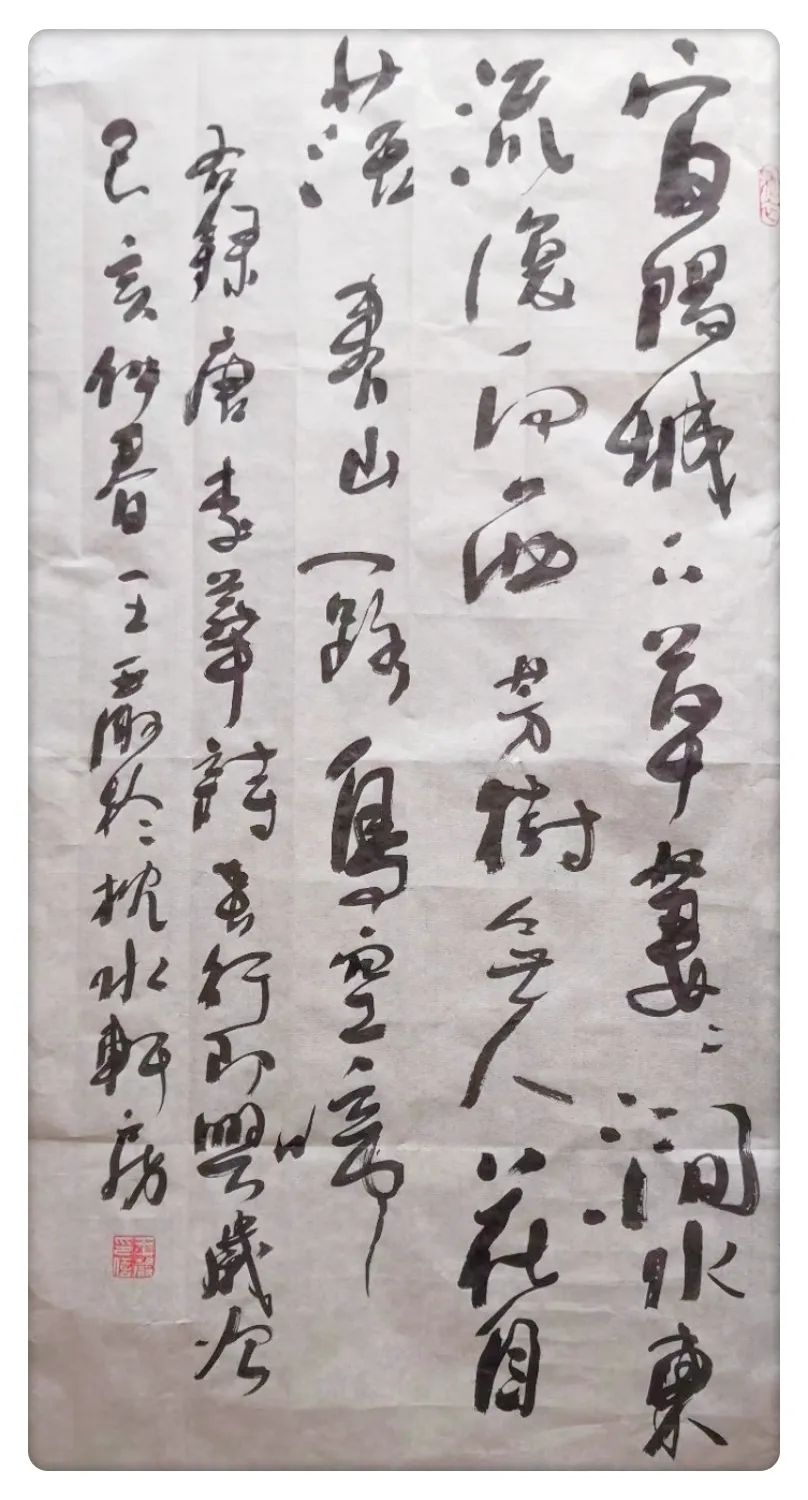 宜陽城下草萋〻澗水東
流復向西芳樹無人花自
落春山一路鳥空啼
右錄唐李華詩春行即興歲次
己亥仲春王於枕水軒房